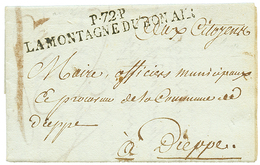 P.72.P
LAMONTAGNE DU BON AIR
Aux Citoyens
Maire, officiers municipaux
Et procureur de la Commune de
dieppe
à Dieppe